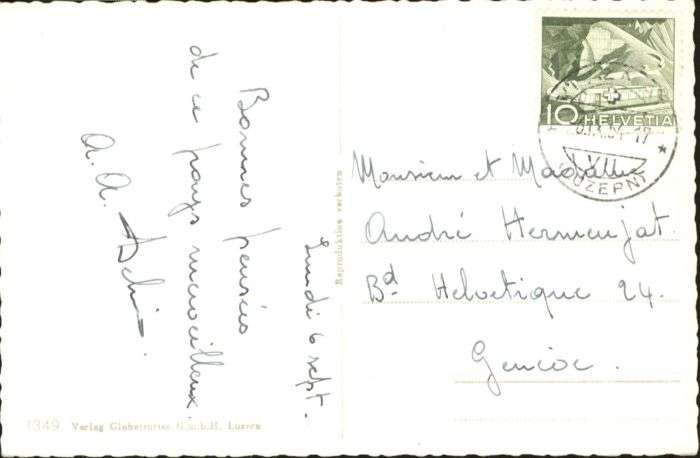 Lundi 6 sept.
Bonnes pensées
de ce pays merveilleux.
A. A.
Monsieur et Madame
André Hermenjat.
Bd Helvetique 24.
Genève.
10 HELVETIA
LUZERN
Reproduktion verboten
1349 Verlag Globetrotter G.m.b.H. Luzern